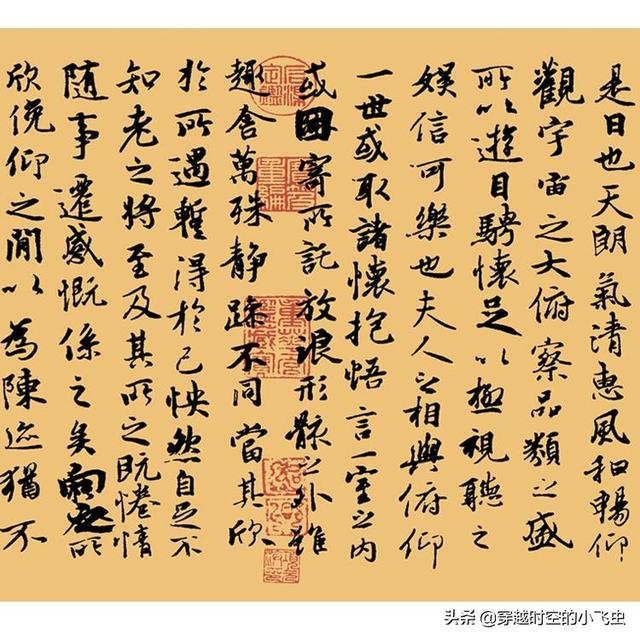 是日也天朗氣清惠風和暢仰
觀宇宙之大俯察品類之盛
所以遊目騁懷足以極視聽之
娛信可樂也夫人之相與俯仰
一世或取諸懷抱悟言一室之內
或因寄所託放浪形骸之外雖
趣舍萬殊靜躁不同當其欣
於所遇暫得於己怏然自足不
知老之將至及其所之既惓情
隨事遷感慨係之矣向之所
欣俛仰之閒以為陳迹猶不
头条 @穿越时空的小飞虫